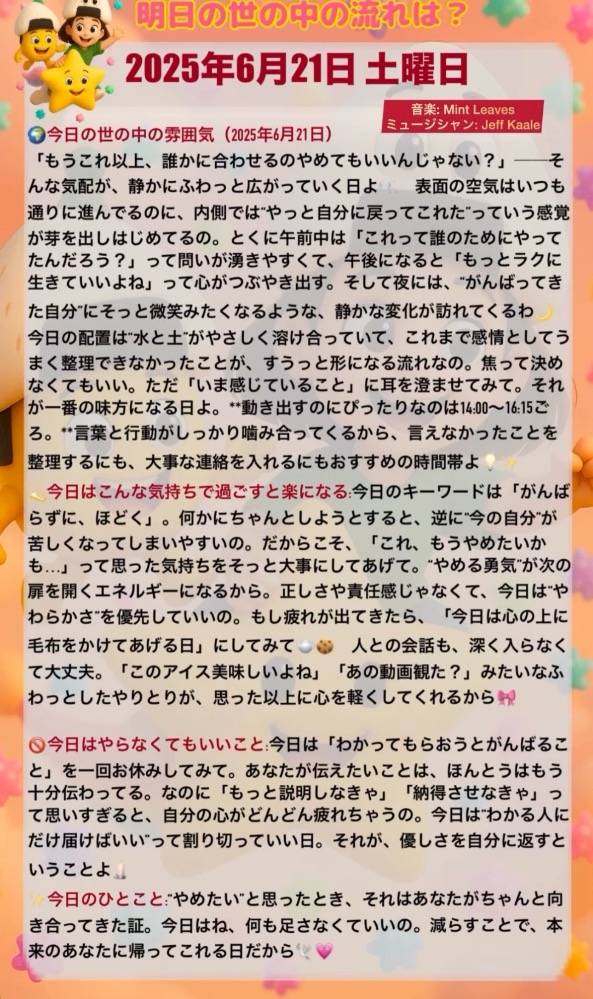 明日の世の中の流れは？
2025年6月21日 土曜日
音楽: Mint Leaves
ミュージシャン: Jeff Kaale
🌍今日の世の中の雰囲気（2025年6月21日）
「もうこれ以上、誰かに合わせるのやめてもいいんじゃない？」──そ
んな気配が、静かにふわっと広がっていく日よ　表面の空気はいつも
通りに進んでるのに、内側では“やっと自分に戻ってこれた”っていう感覚
が芽を出しはじめてるの。とくに午前中は「これって誰のためにやって
たんだろう？」って問いが湧きやすくて、午後になると「もっとラクに
生きていいよね」って心がつぶやき出す。そして夜には、“がんばってき
た自分”にそっと微笑みたくなるような、静かな変化が訪れてくるわ🌙
今日の配置は“水と土”がやさしく溶け合っていて、これまで感情としてう
まく整理できなかったことが、すうっと形になる流れなの。焦って決め
なくてもいい。ただ「いま感じていること」に耳を澄ませてみて。それ
が一番の味方になる日よ。**動き出すのにぴったりなのは14:00〜16:15ご
ろ。**言葉と行動がしっかり噛み合ってくるから、言えなかったことを
整理するにも、大事な連絡を入れるにもおすすめの時間帯よ💡✨
💫今日はこんな気持ちで過ごすと楽になる:今日のキーワードは「がんば
らずに、ほどく」。何かにちゃんとしようとすると、逆に“今の自分”が
苦しくなってしまいやすいの。だからこそ、「これ、もうやめたいか
も…」って思った気持ちをそっと大事にしてあげて。“やめる勇気”が次の
扉を開くエネルギーになるから。正しさや責任感じゃなくて、今日は“や
わらかさ”を優先していいの。もし疲れが出てきたら、「今日は心の上に
毛布をかけてあげる日」にしてみて☁️🍪　人との会話も、深く入らなく
て大丈夫。「このアイス美味しいよね」「あの動画観た？」みたいなふ
わっとしたやりとりが、思った以上に心を軽くしてくれるから🎀
🚫今日はやらなくてもいいこと:今日は「わかってもらおうとがんばるこ
と」を一回お休みしてみて。あなたが伝えたいことは、ほんとうはもう
十分伝わってる。なのに「もっと説明しなきゃ」「納得させなきゃ」っ
て思いすぎると、自分の心がどんどん疲れちゃうの。今日は“わかる人に
だけ届けばいい”って割り切っていい日。それが、優しさを自分に返すと
いうことよ🕯️
✨今日のひとこと:“やめたい”と思ったとき、それはあなたがちゃんと向
き合ってきた証。今日はね、何も足さなくていいの。減らすことで、本
来のあなたに帰ってこれる日だから🕊️💗